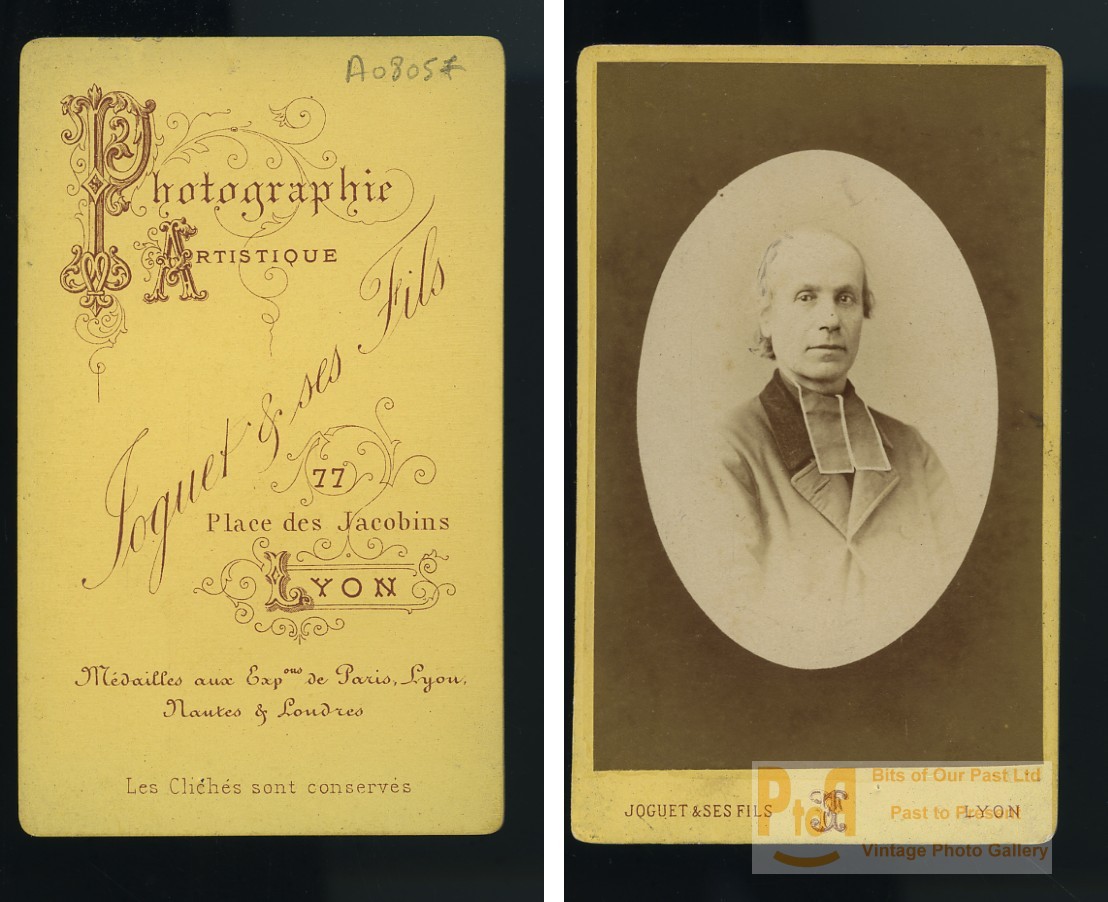 A08057
Photographie
ARTISTIQUE
Joguet & ses Fils
77
Place des Jacobins
LYON
Médailles aux Exp.ons de Paris, Lyon,
Nantes & Londres
Les Clichés sont conservés
JOGUET & SES FILS
LYON
PtoP
Bits of Our Past Ltd
Past to Present
Vintage Photo Gallery